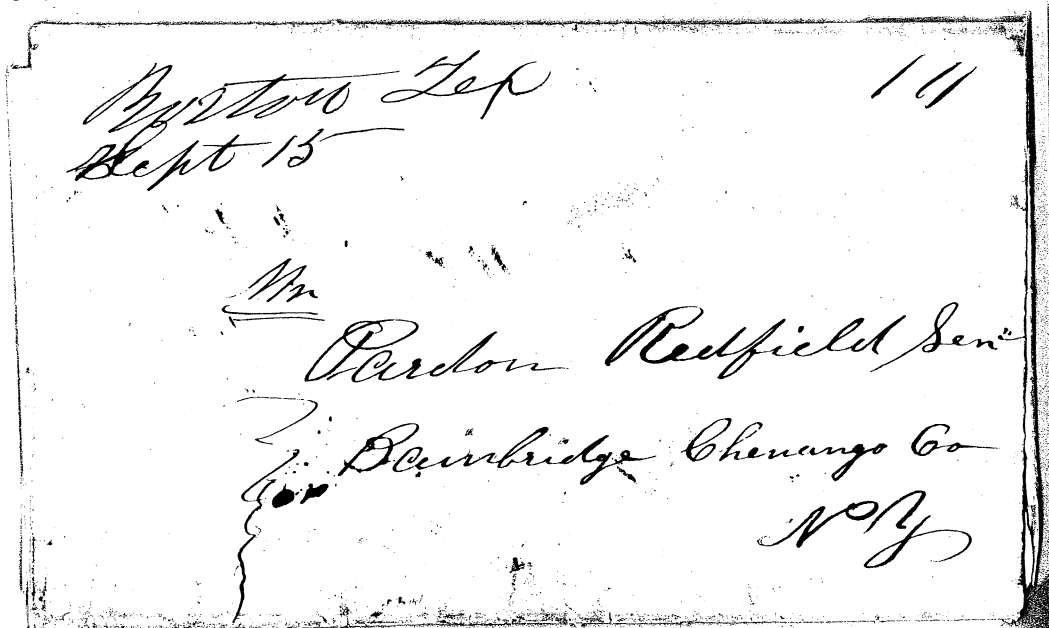 Burton Tex
Sept 15
Mr
Pardon Redfield Sen"
Bainbridge Chenango Co
N Y